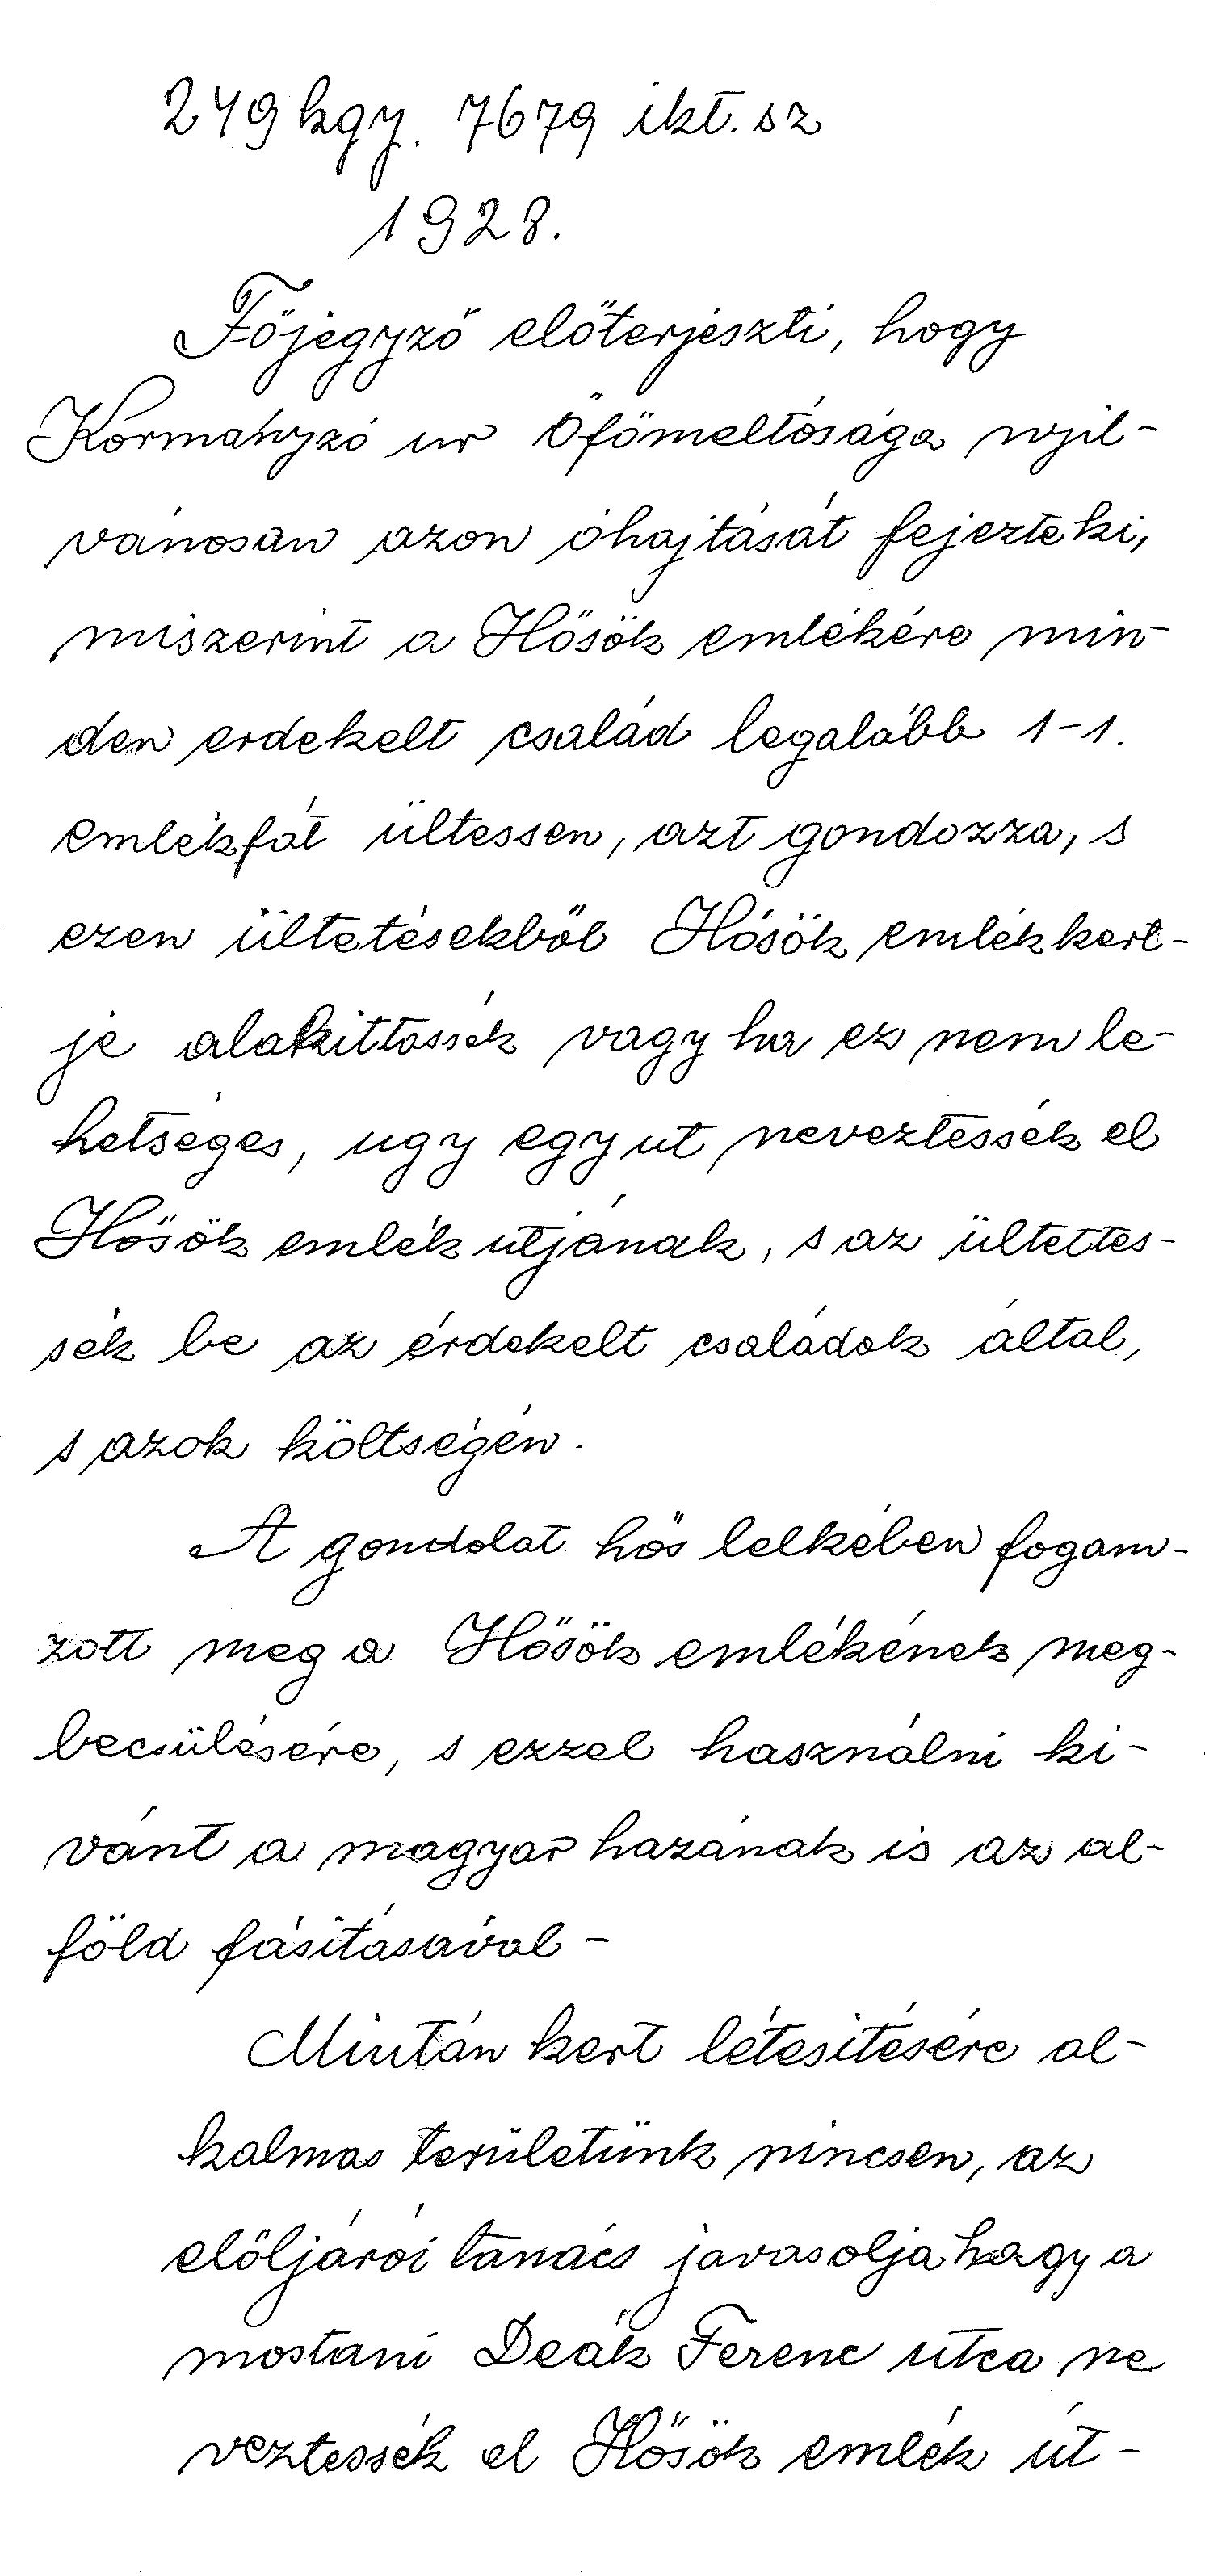 249 kgy. 7679 ikt. sz
1928.
Főjegyző előterjeszti, hogy
Kormányzó ur Őfőmeltósága nyil-
vánosan azon óhajtását fejezte ki,
miszerint a Hősök emlékére min-
den erdekelt család legalább 1-1.
emlékfát ültessen, azt gondozza, s
ezen ültetésekből Hősök emlékkert-
je alakittassék vagy ha ez nem le-
hetséges, ugy egy ut neveztessék el
Hősök emlék utjának, s az ültettes-
sék be az érdekelt családok által,
s azok költségén.
A gondolat hős lelkében fogam-
zott meg a Hősök emlékének meg-
becsülésére, s ezzel használni ki-
vánt a magyar hazának is az al-
föld fásitásával -
Miután kert létesitésére al-
kalmas területünk nincsen, az
előljárói tanács javasolja hogy a
mostani Deák Ferenc utca ne
veztessék el Hősök emlék út-